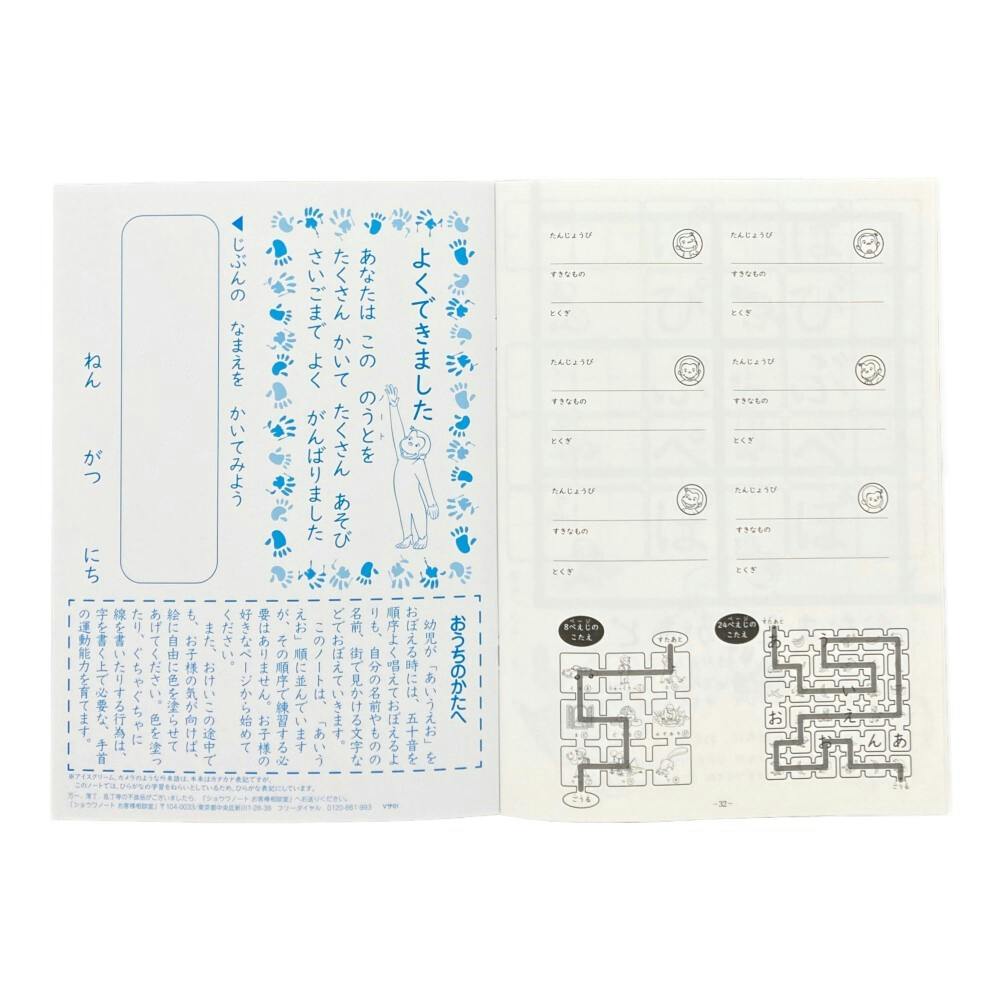 よくできました
あなたは この のうとを
ノート
たくさん かいて たくさん あそび
さいごまで よく がんばりました
じぶんの なまえを かいてみよう
ねん がつ にち
おうちのかたへ
幼児が「あいうえお」を
おぼえる時には、五十音を
順序よく唱えておぼえるよ
りも、自分の名前やものの
名前、街で見かける文字な
どでおぼえていきます。
このノートは、「あいう
えお」順に並んでいます
が、その順序で練習する必
要はありません。お子様の
好きなページから始めて
ください。
また、おけいこの途中で
も、お子様の気が向けば、
絵に自由に色を塗らせて
あげてください。色を塗っ
たり、ぐちゃぐちゃに
線を書いたりする行為は、
字を書く上で必要な、手首
の運動能力を育てます。
※アイスクリーム、カメラのような外来語は、本来はカタカナ表記ですが、
このノートでは、ひらがなの学習をねらいとしているため、ひらがな表記にしています。
万一、落丁、乱丁等の不良品がございましたら、「ショウワノート お客様相談室」へお送りください。
「ショウワノート お客様相談室」〒104-0033/東京都中央区新川1-28-38 フリーダイヤル 0120-861-993
たんじょうび
すきなもの
とくぎ
たんじょうび
すきなもの
とくぎ
たんじょうび
すきなもの
とくぎ
たんじょうび
すきなもの
とくぎ
たんじょうび
すきなもの
とくぎ
たんじょうび
すきなもの
とくぎ
ページ
8ぺえじの
こたえ
すたあと
ごうる
ページ
24ぺえじの
こたえ
すたあと
あ
う
い
お
え
お
ん
あ
ごうる
-32-